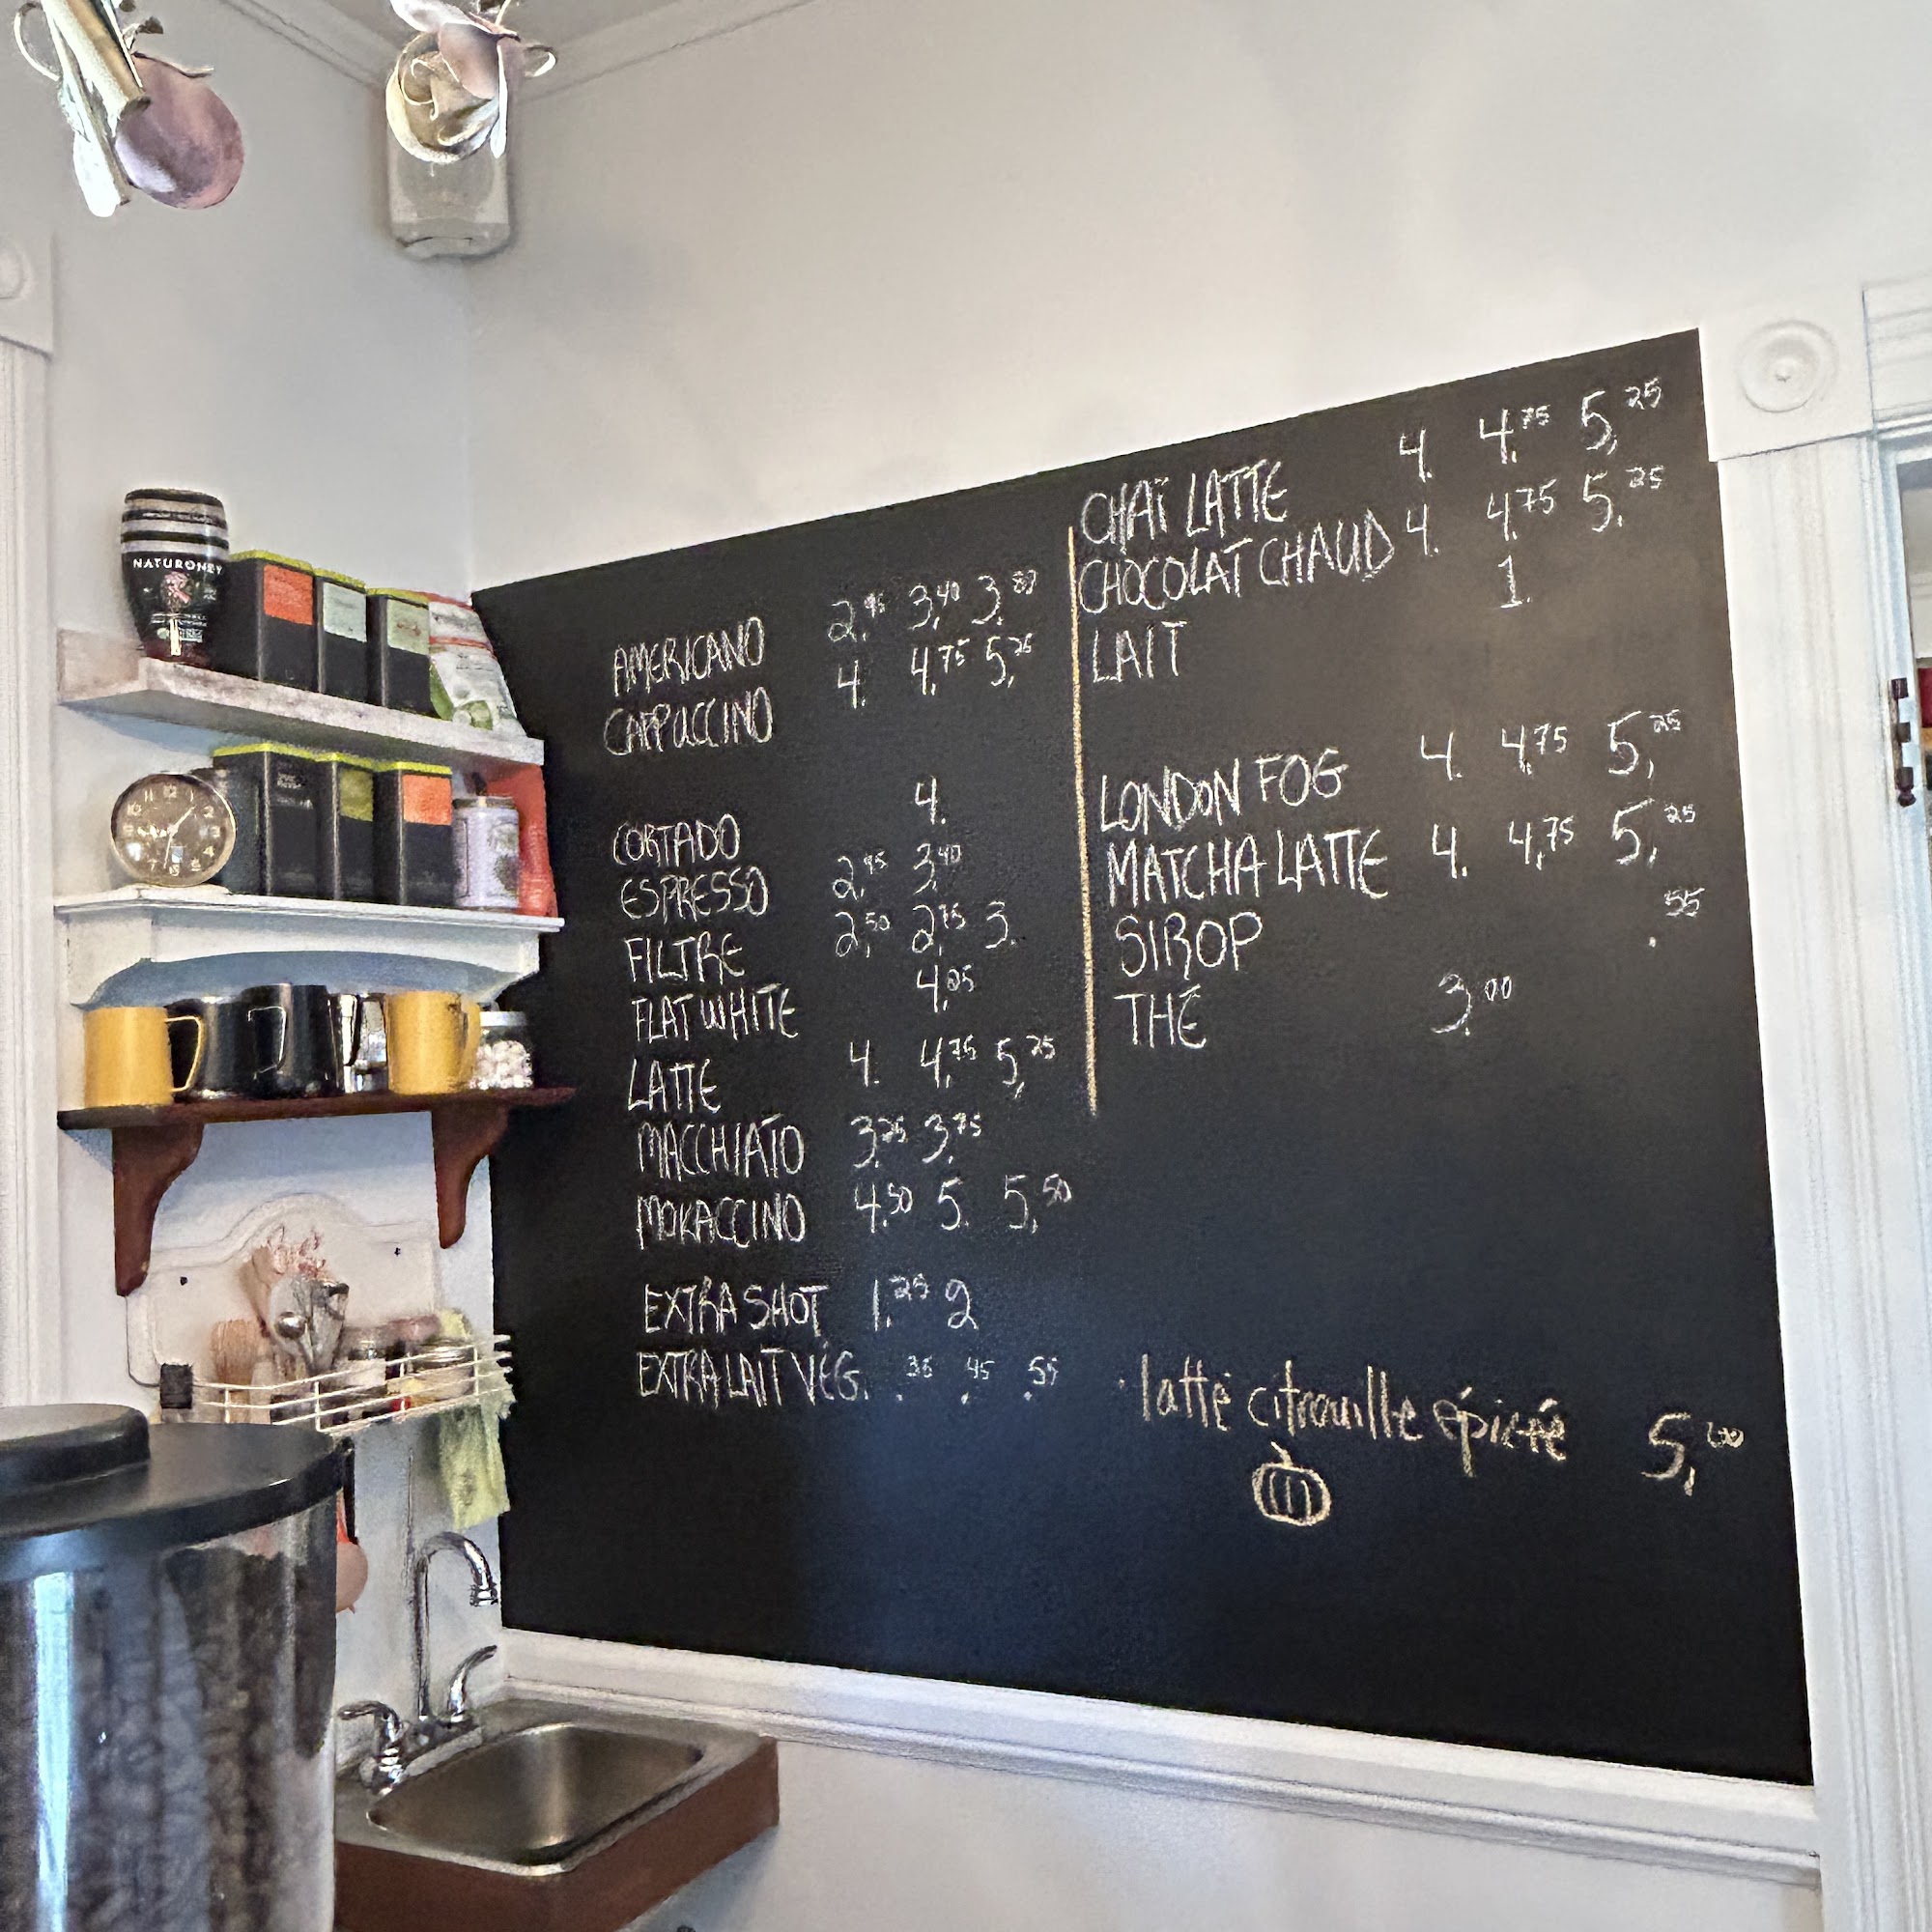 NATURONEY
AMERICANO 2.95 3.40 3.80
CAPPUCCINO 4. 4.75 5.25
CORTADO 4.
ESPRESSO 2.95 3.40
FILTRE 2.50 2.75 3.
FLAT WHITE 4.25
LATTE 4. 4.75 5.25
MACCHIATO 3.25 3.75
MOKACCINO 4.50 5. 5.50
EXTRA SHOT 1.25 2
EXTRA LAIT VÉG. .35 .45 .55
CHAÏ LATTE 4. 4.75 5.25
CHOCOLAT CHAUD 4. 4.75 5.25
LAIT 1.
LONDON FOG 4. 4.75 5.25
MATCHA LATTE 4. 4.75 5.25
SIROP .55
THÉ 3.00
latte citrouille épicée 5.00